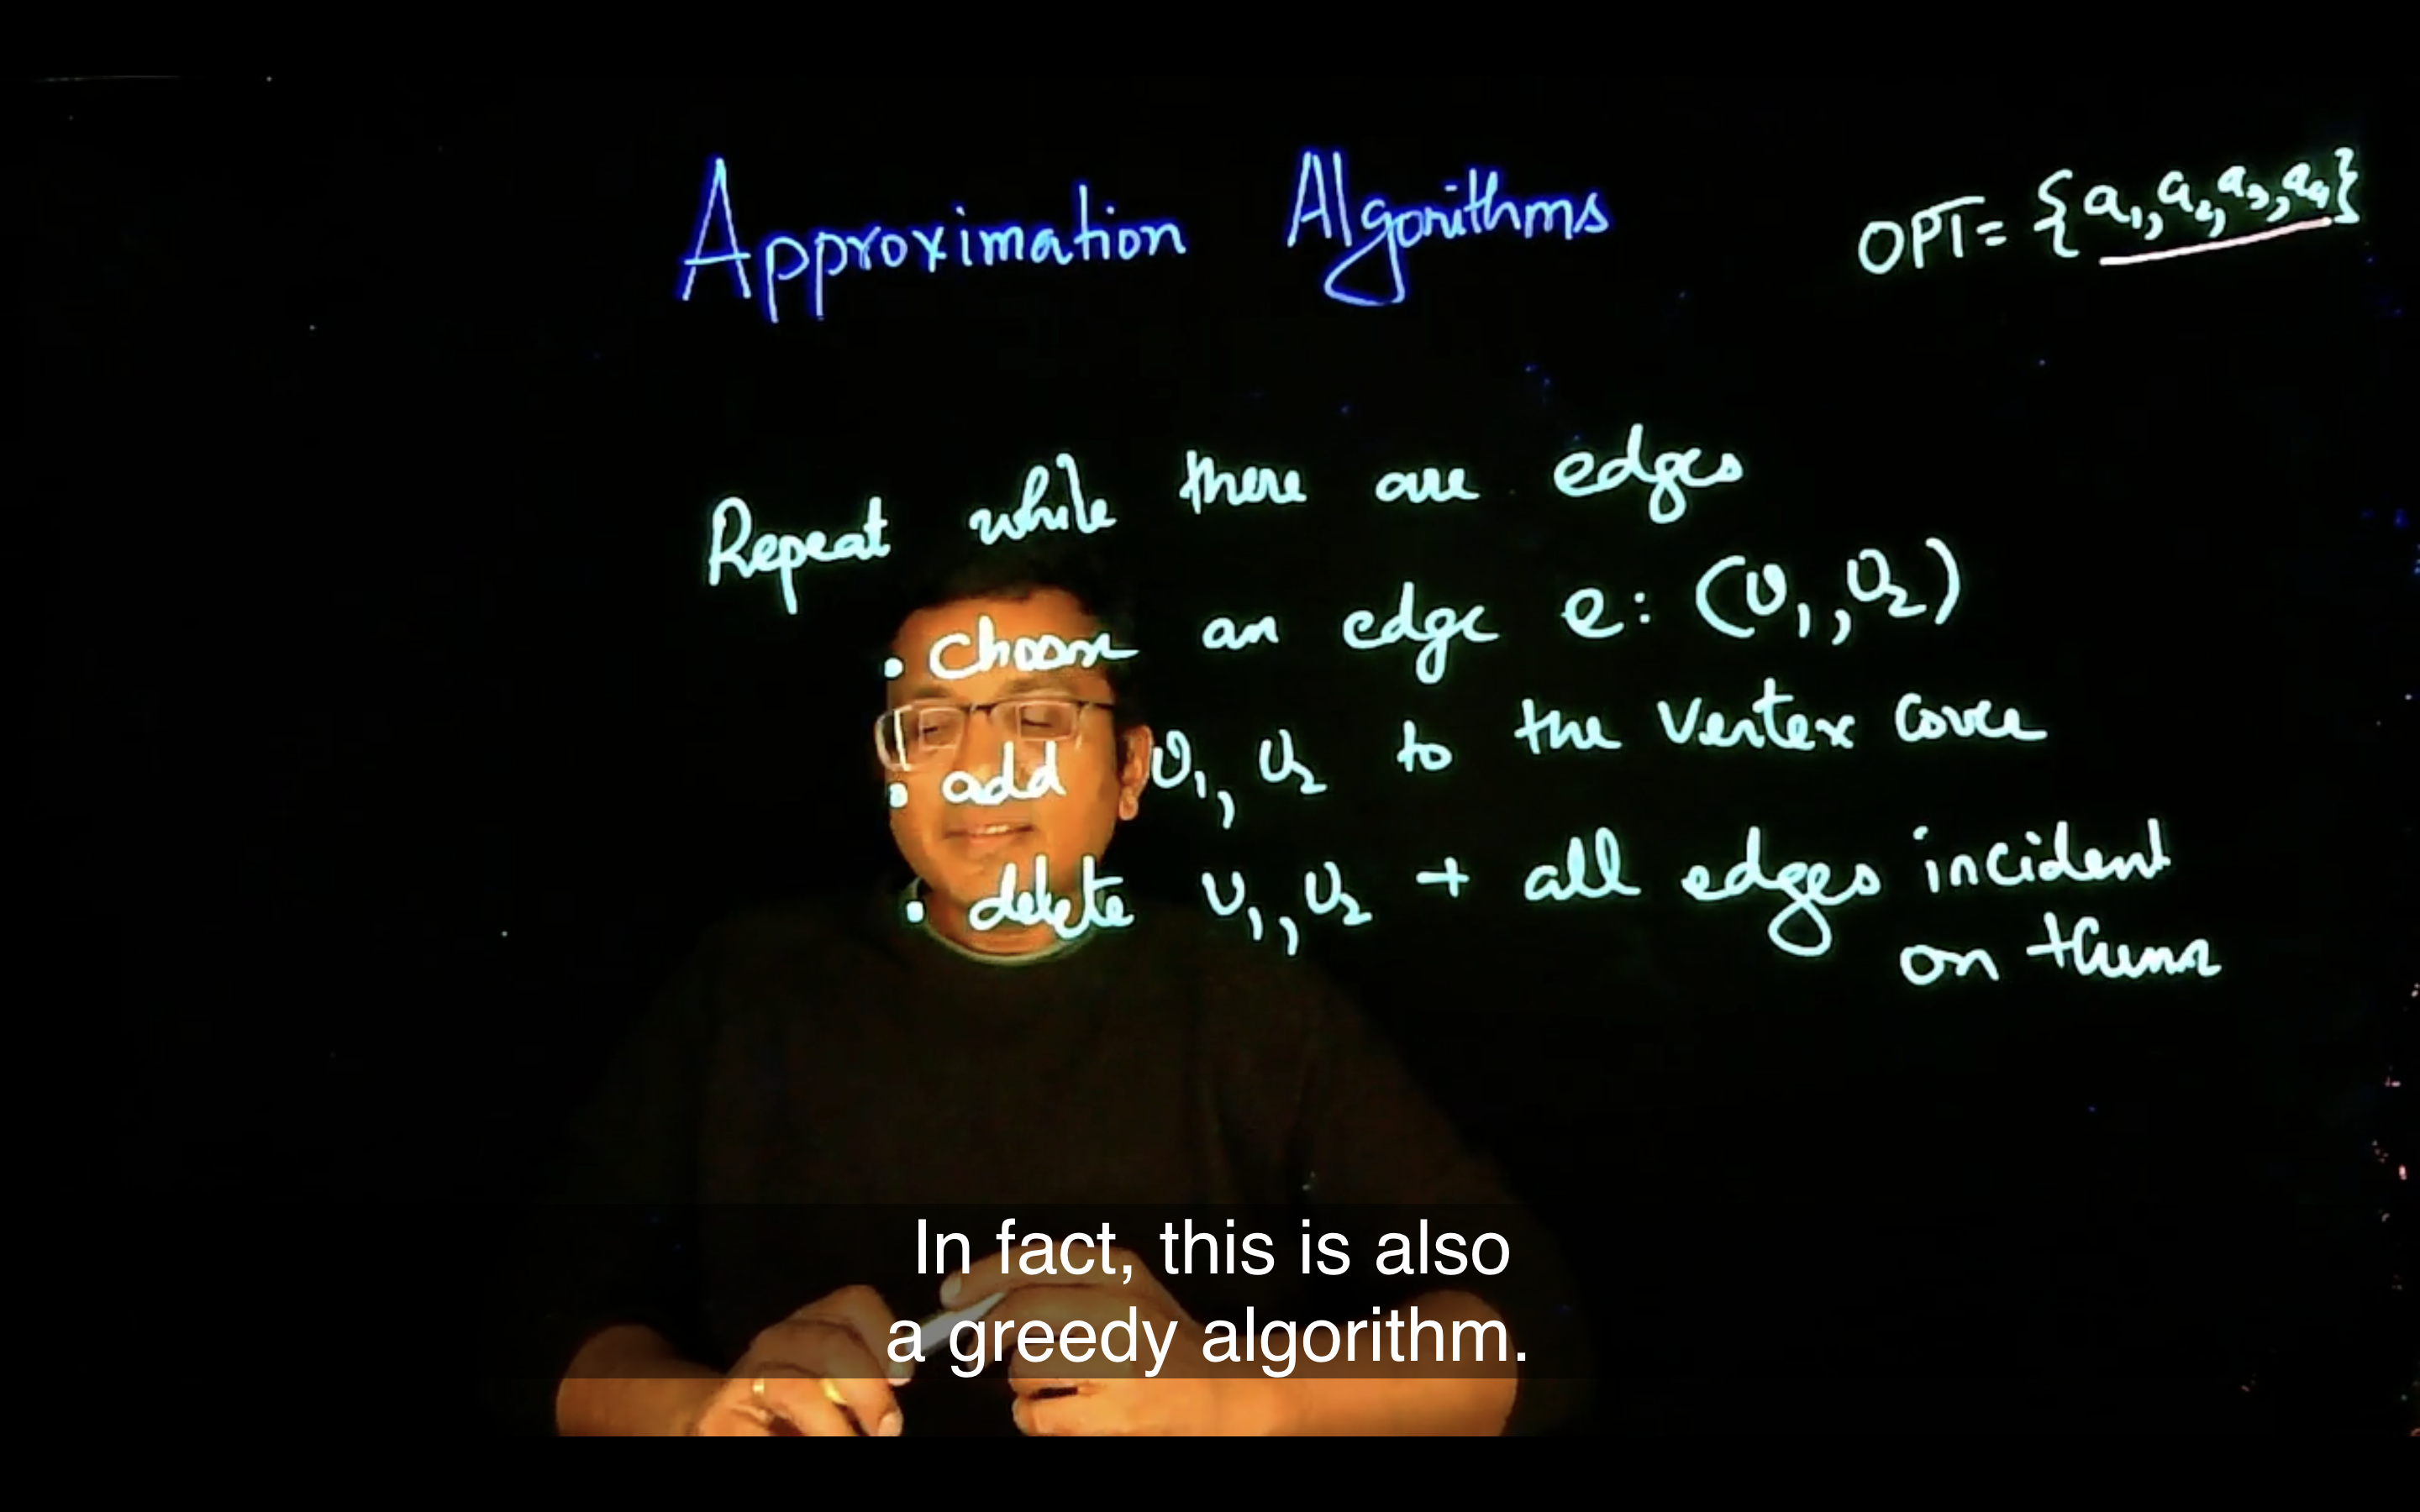 Approximation Algorithms
OPT= {a₁, a₂, a₃, a₄}
Repeat while there are edges
• choose an edge e: (v₁, v₂)
• add v₁, v₂ to the vertex cover
• delete v₁, v₂ + all edges incident
on them
In fact, this is also
a greedy algorithm.